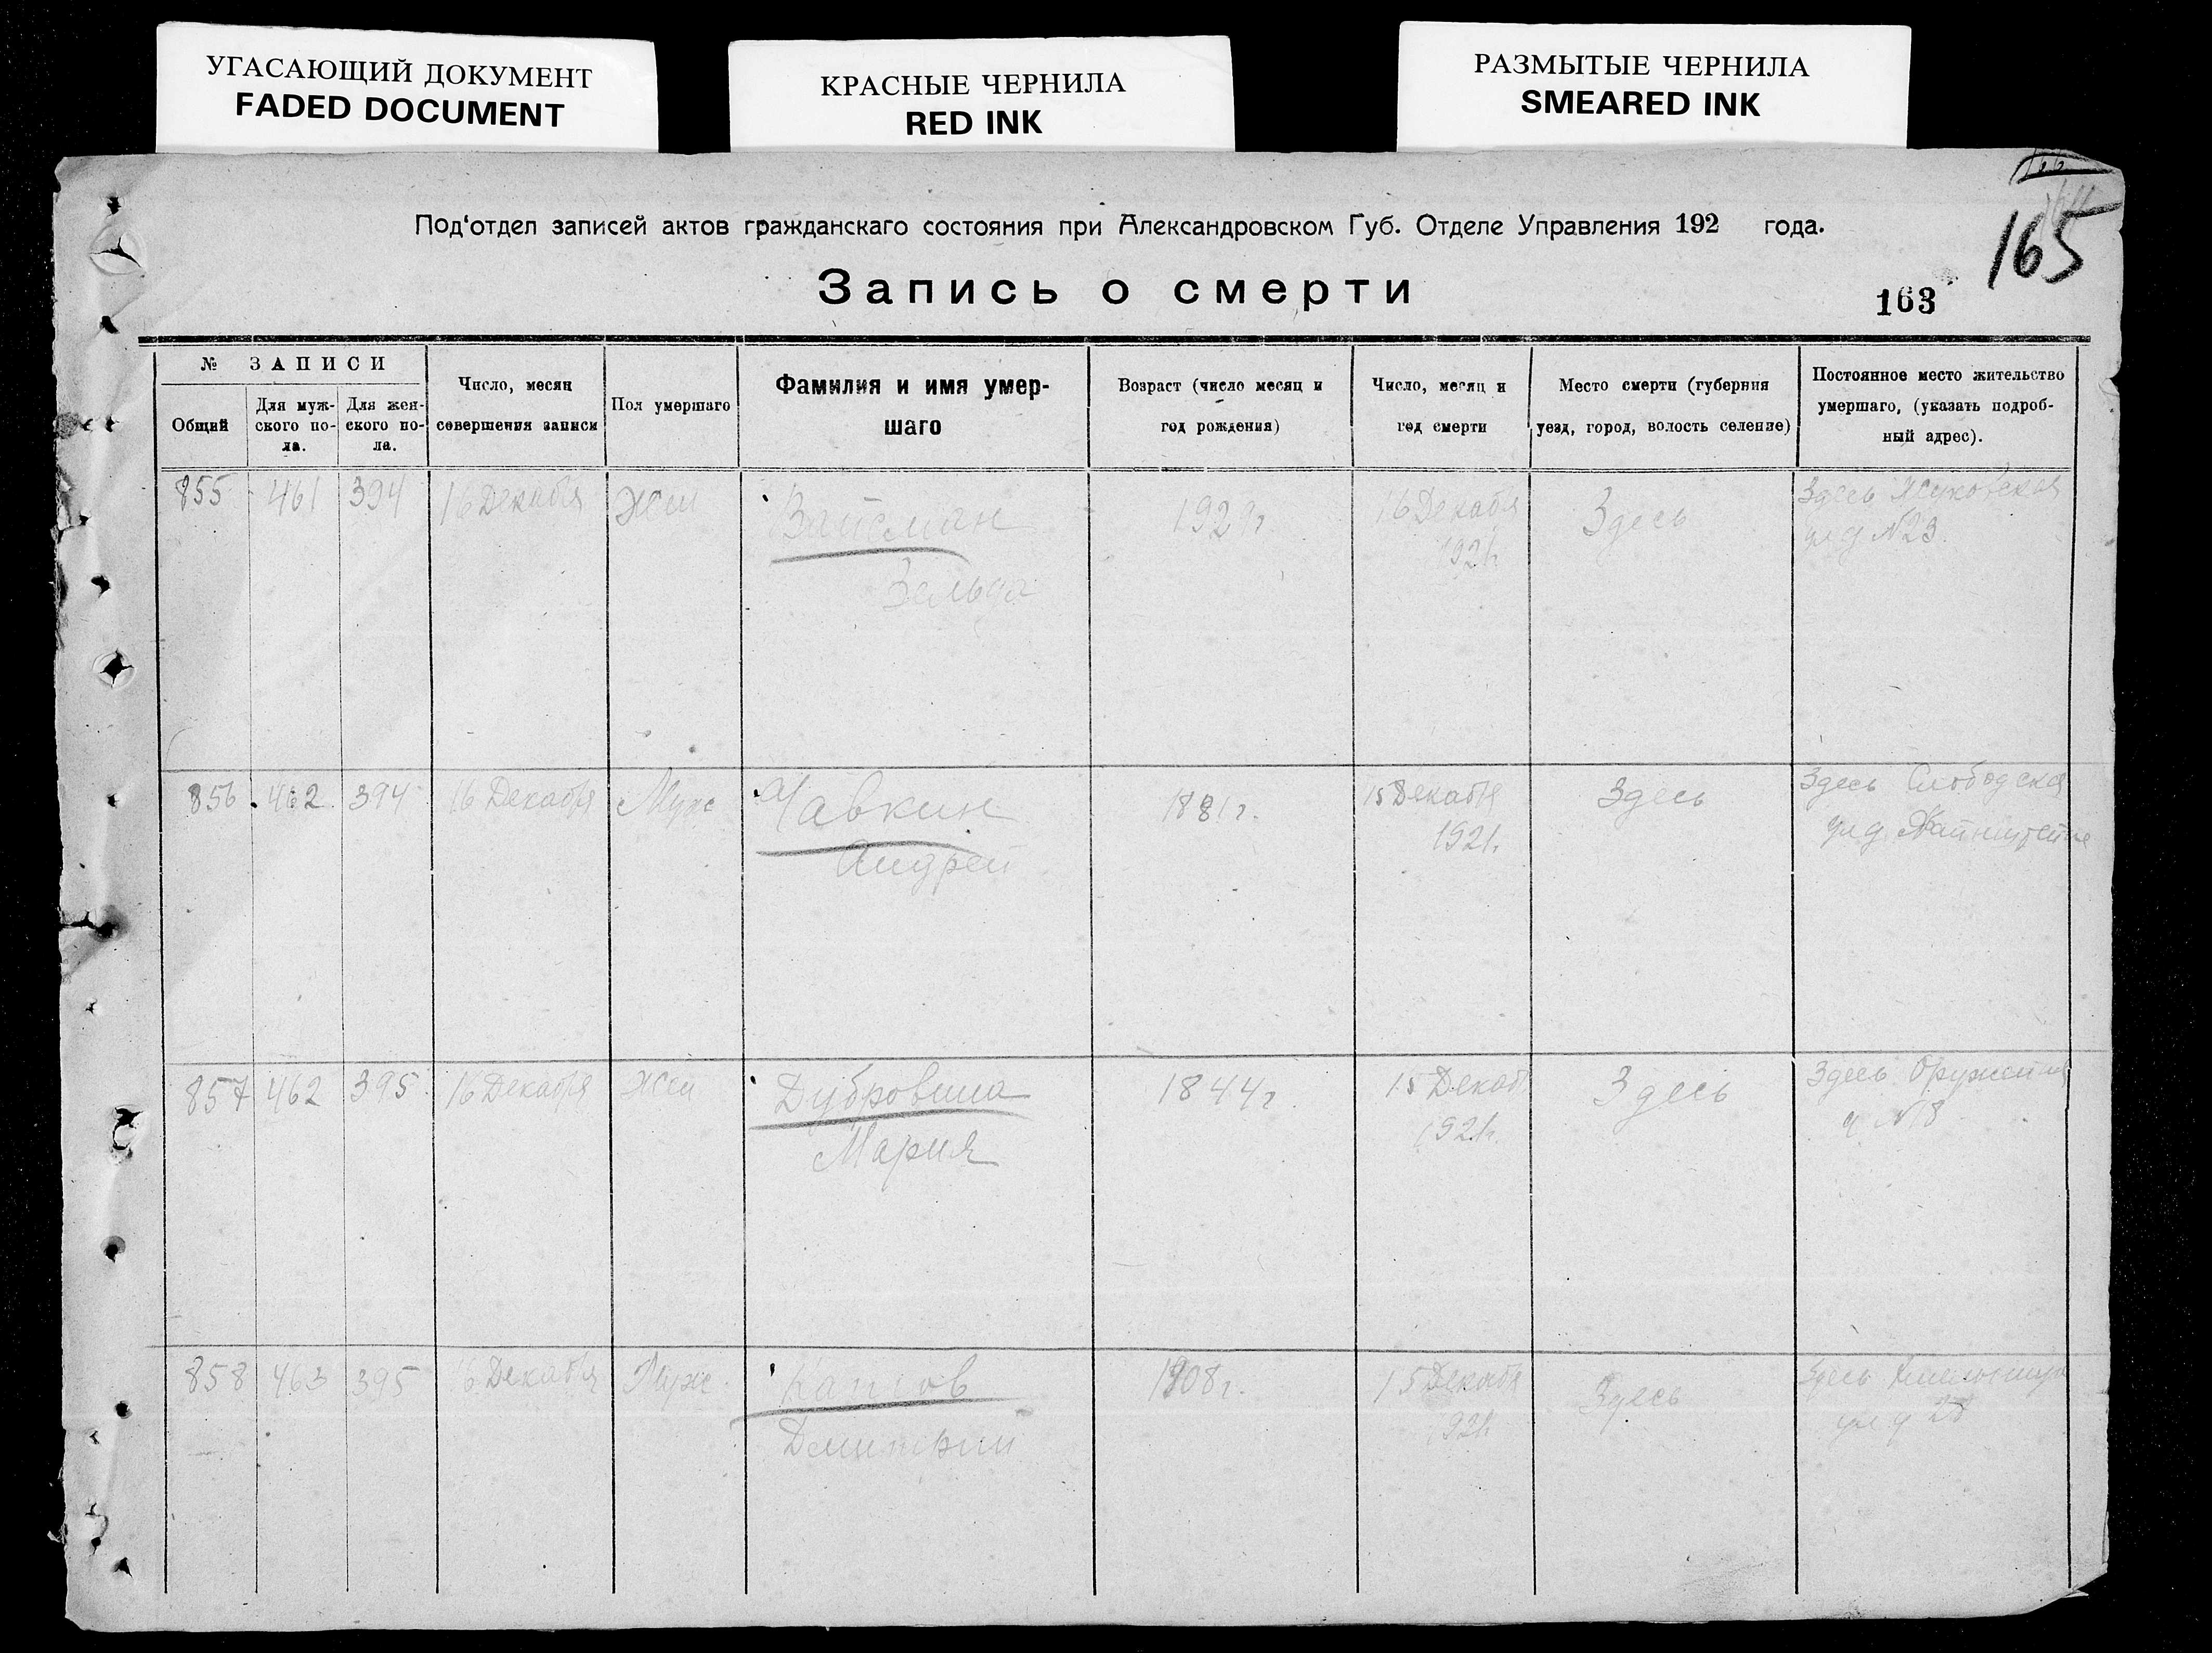 УГАСАЮЩИЙ ДОКУМЕНТ
FADED DOCUMENT
КРАСНЫЕ ЧЕРНИЛА
RED INK
РАЗМЫТЫЕ ЧЕРНИЛА
SMEARED INK
165
Под‘отдел записей актов гражданскаго состояния при Александровском Губ. Отделе Управления 192 года.
Запись о смерти
163
№ ЗАПИСИ
Общий
Для муж-
ского по-
ла.
Для жен-
ского по-
ла.
Число, месяц
совершения записи
Пол умершаго
Фамилия и имя умер-
шаго
Возраст (число месяц и
год рождения)
Число, месяц и
год смерти
Место смерти (губерния
уезд, город, волость селение)
Постоянное место жительство
умершаго, (указать подроб-
ный адрес).
855 461 394 16 Декабря Жен
Вайсман
Зельда
1921г.
16 Декабря
1921г
Здесь
Здесь Жуковская
ул д №23.
856 462 394 16 Декабря Муж
Чавкин
Андрей
1881г.
15 Декабря
1921.
Здесь
Здесь Слободская
ул д.
857 462 395 16 Декабря Жен
Дубровина
Мария
1844г
15 Декаб
1921г.
Здесь
Здесь
№18
858 463 395 16 Декабря Муж
Дмитрий
1908г.
15 Декабря
1921г
Здесь
Здесь
ул д 28